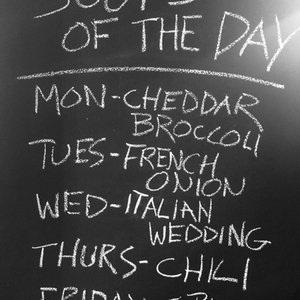 SOUPS
OF THE DAY
MON-CHEDDAR
BROCCOLI
TUES-FRENCH
ONION
WED-ITALIAN
WEDDING
THURS-CHILI
FRIDAY